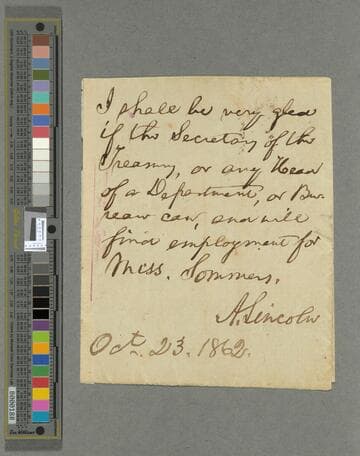 I shall be very glad
if the Secretary of the
Treasury, or any Head
of a Department, or Bu-
reau can, and will
find employment for
Miss. Sommers.
A. Lincoln
Oct. 23. 1862.